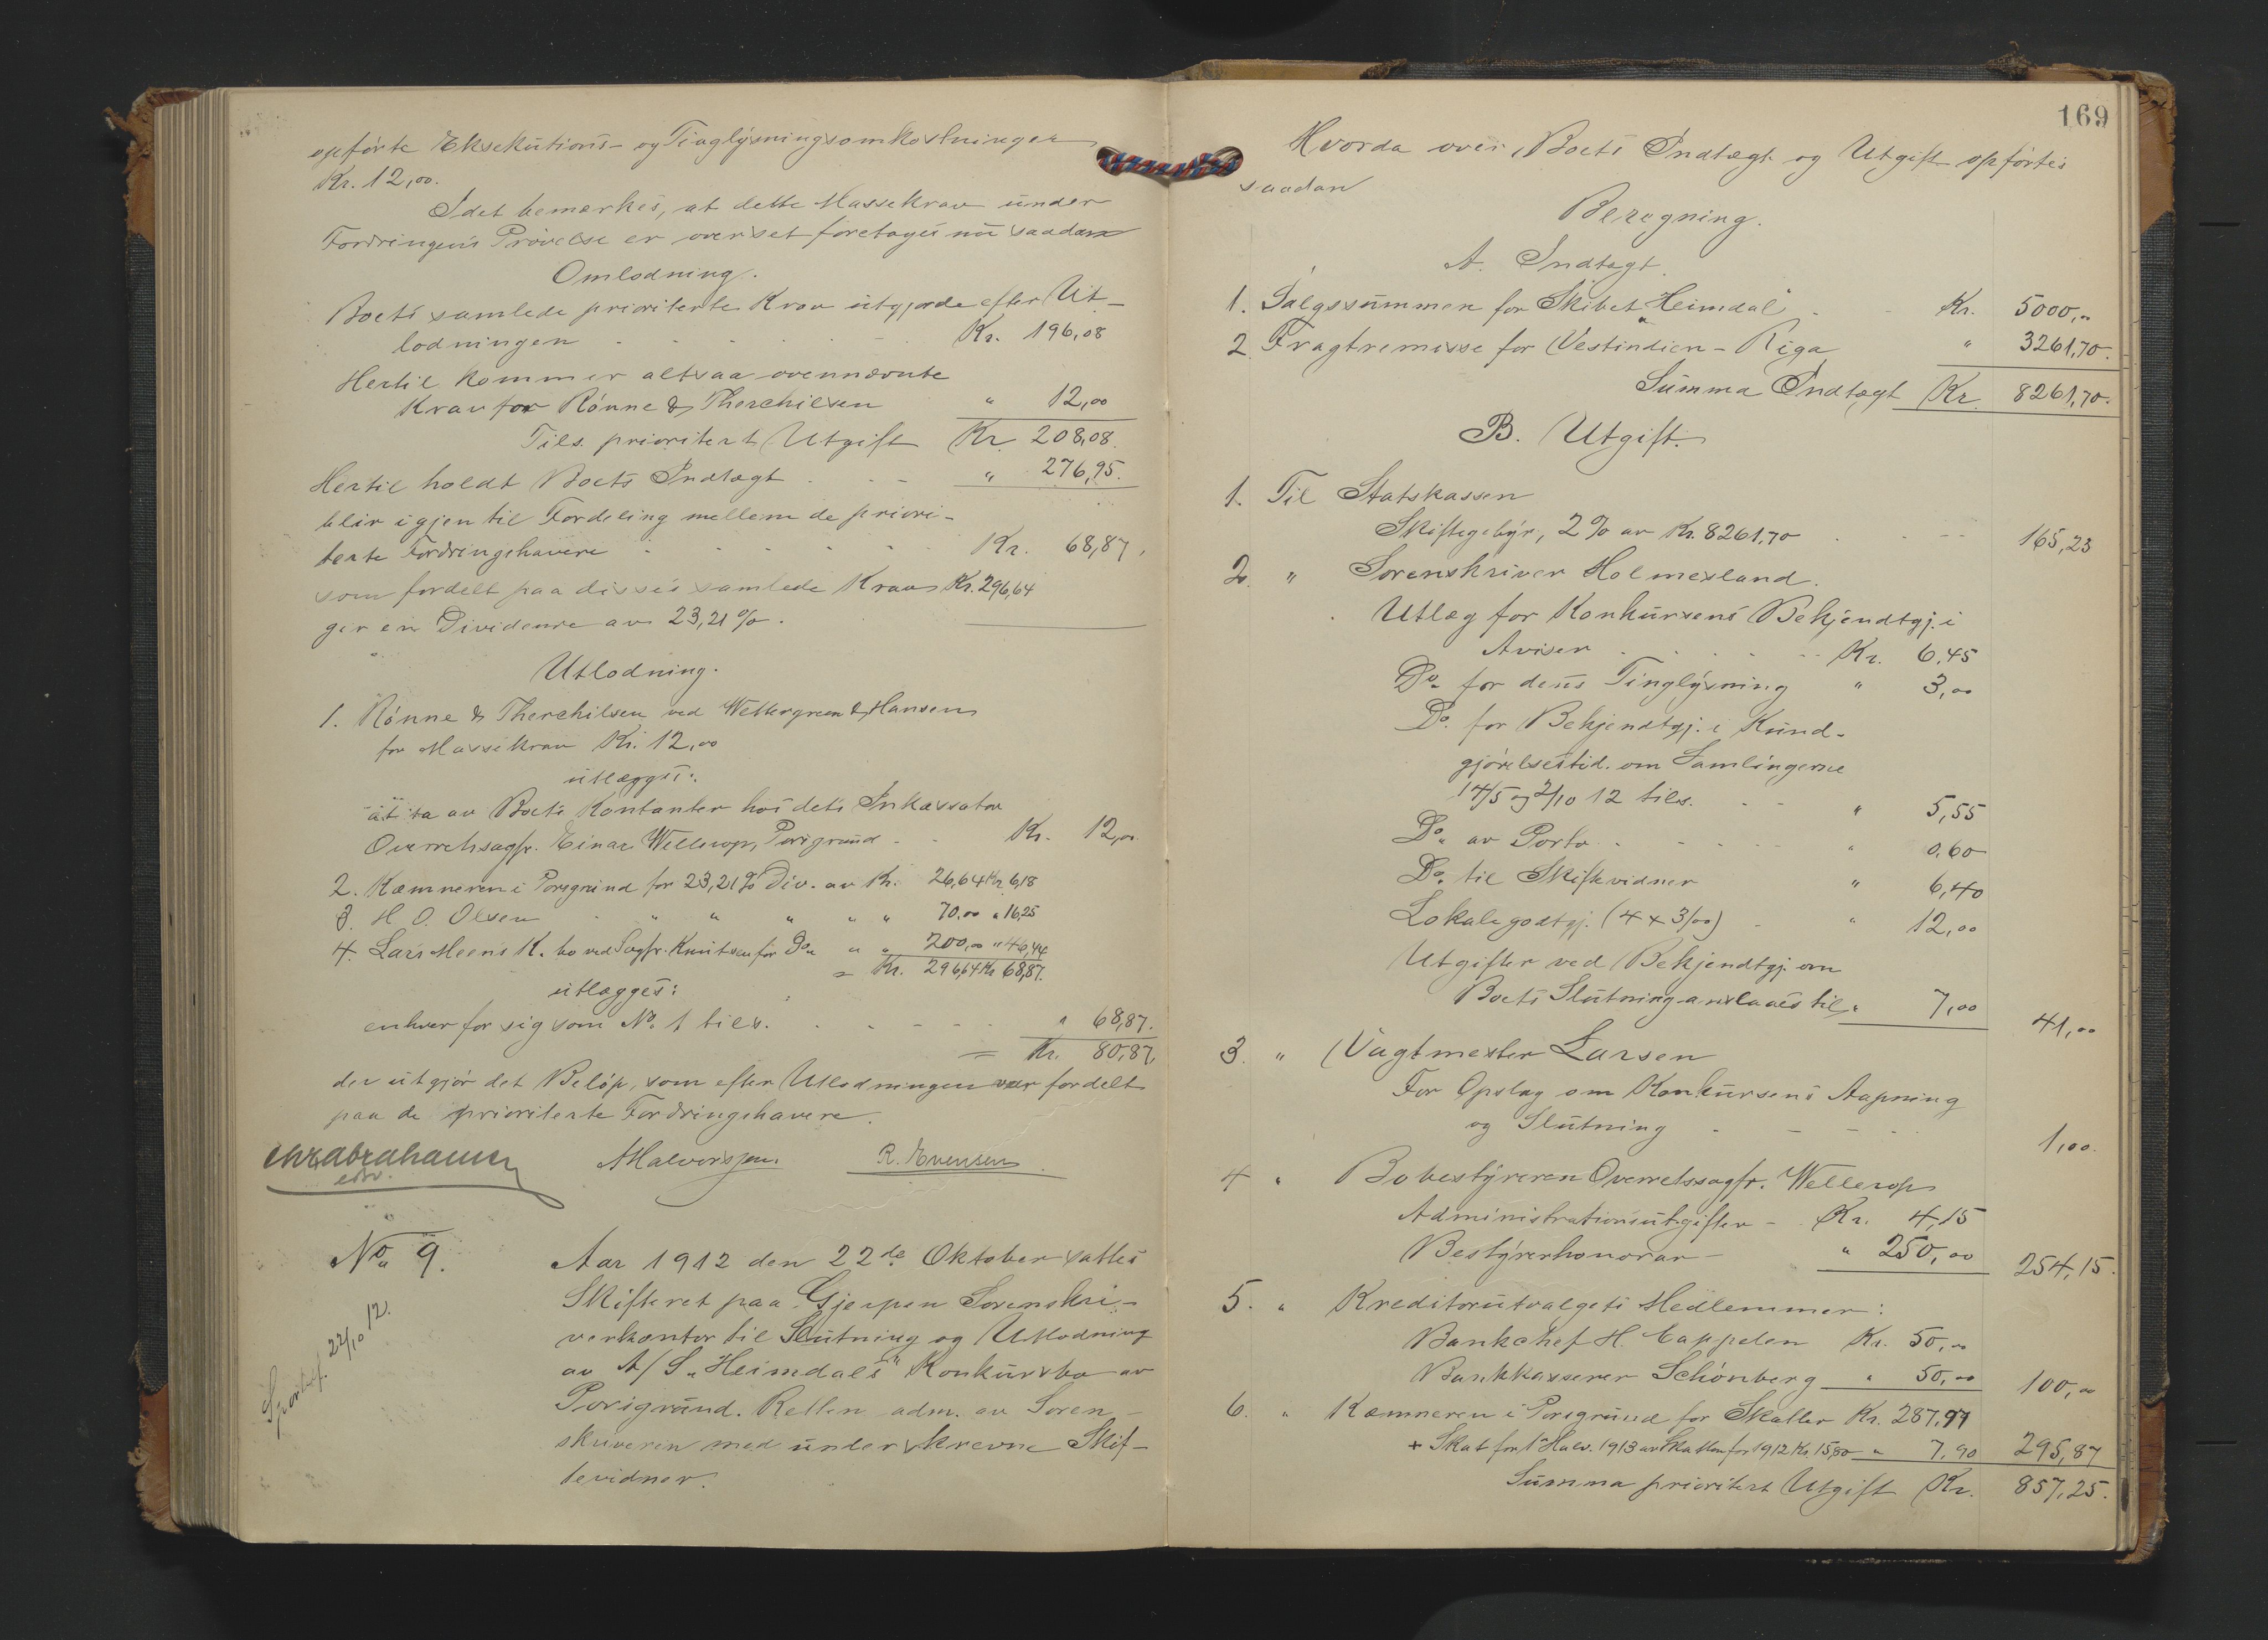 opførte Eksekutions- og Tinglysningsomkostninger
Kr. 12,00.
Idet bemerkes, at dette Massekrav under
Fordringens Prøvelse er overset foretages nu saadan
Omlodning.
Boets samlede prioriterte Krav utgjorde efter Ut-
lodningen . . . . . Kr. 196,08
Hertil kommer altsaa ovennævnte
Krav for Rönne & Therchilsen " 12,00
Tils. prioritert Utgift Kr. 208,08.
Hertil holdt Boets Indtægt . . - " 276,95.
blir igjen til Fordeling mellem de priori-
terte Fordringshavere . . . . . Kr. 68,87,
som fordelt paa disses samlede Krav Kr. 296,64
gir en Dividende av 23,21 %.
Utlodning.
1. Rönne & Therchilsen ved Wettergreen & Hansen
for Massekrav Kr. 12,00
utlægges:
at ta av Boets Kontanter hos dets Inkassator
Overretssagfr. Einar Wellerop, Porsgrund - - Kr. 12,00
2. Kæmneren i Porsgrund for 23,21% Div. av Kr. 26,64 Kr. 6,18
3. H. O. Olsen " " " " " 70,00 " 16,25
4. Lars Meens K. bo ved Sagfr. Knutsen for Do " " 200,00 " 46,44
= Kr. 296,64 Kr. 68,87.
utlægges:
enhver for sig som No. 1 tils. . . - - - " 68,87.
= Kr. 80,87,
der utgjør det Beløp, som efter Utlodningen var fordelt
paa de prioriterte Fordringshavere.
Chr Abrahamsen
edv.
A Halvorsen
R. Evensen
No. 9.
Sportel. 22/10 12.
Aar 1912 den 22de Oktober sattes
Skifteret paa Gjerpen Sorenskri-
verkontor til Slutning og Utlodning
av A/S „Heimdals" Konkursbo av
Porsgrund. Retten adm. av Soren-
skriveren med underskrevne Skif-
tevidner.
169
Hvorda over Boets Indtægt og Utgift opførtes
saadan
Beregning.
A. Indtægt.
1. Salgssummen for Skibet „Heimdal" . - Kr. 5000,00
2. Fragtremisse for Vestindien - Riga " 3261,70.
Summa Indtægt Kr. 8261,70.
B. Utgift.
1. Til Statskassen
Skiftegebyr, 2% av Kr. 8261,70 . . - - 165,23
2. " Sorenskriver Holmesland.
Utlæg for Konkursens Bekjendtgj. i
Aviser . . . . - - Kr. 6,45
Do. for dens Tinglysning " 3,00
Do. for Bekjendtgj. i Kund-
gjørelsestid. om Samlingerne
14/5 og 2/10 12 tils. - - " 5,55
Do. av Porto . . - - - - " 0,60
Do. til Skiftevidner " 6,40
Lokalegodtgj. (4 x 3/00) - " 12,00
Utgifter ved Bekjendtgj. om
Boets Slutning anslaaes til " 7,00 41,00
3. " Vagtmester Larsen
For Opslag om Konkursens Aapning
og Slutning . - - - 1,00.
4 " Bobestyreren Overretssagfr. Wellerop
Administrationsutgifter - Kr. 4,15
Bestyrerhonorar - " 250,00 254,15.
5. " Kreditorutvalgets Medlemmer:
Bankchef H. Cappelen Kr. 50,00
Bankkasserer Schönberg " 50,00 100,00
6. " Kæmneren i Porsgrund for Skatter Kr. 287,97
+ Skat for 1 Halv. 1913 av Skatten for 1912 Kr. 15,80 - " 7,90 295,87
Summa prioritert Utgift Kr. 857,25.